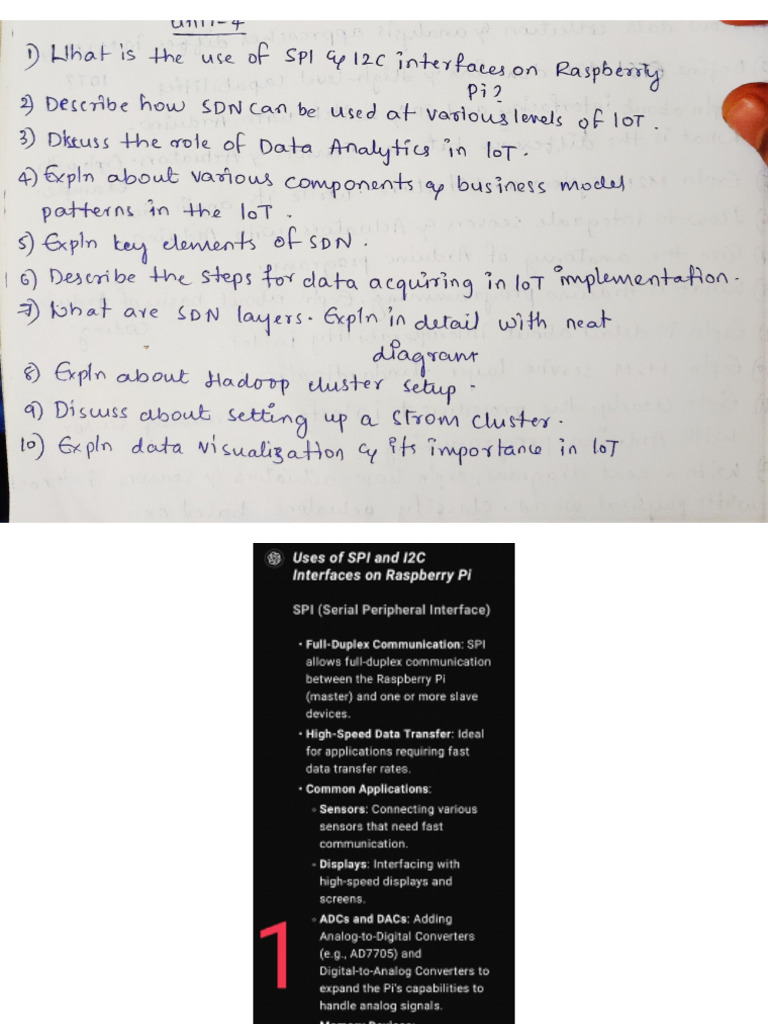 Unit-4
1) What is the use of SPI & I2C interfaces on Raspberrity
Pi?
2) Describe how SDN can be used at various levels of IOT.
3) Discuss the role of Data Analytics in IoT.
4) Expln about various components & business model
patterns in the IoT.
5) Expln key elements of SDN.
6) Describe the steps for data acquiring in IoT implementation.
7) What are SDN layers. Expln in detail with neat
diagram
8) Expln about Hadoop cluster setup.
9) Discuss about setting up a strom cluster.
10) Expln data visualization & its importance in IoT
Uses of SPI and I2C
Interfaces on Raspberry Pi
SPI (Serial Peripheral Interface)
• Full-Duplex Communication: SPI
allows full-duplex communication
between the Raspberry Pi
(master) and one or more slave
devices.
• High-Speed Data Transfer: Ideal
for applications requiring fast
data transfer rates.
• Common Applications:
◦ Sensors: Connecting various
sensors that need fast
communication.
◦ Displays: Interfacing with
high-speed displays and
screens.
◦ ADCs and DACs: Adding
Analog-to-Digital Converters
(e.g., AD7705) and
Digital-to-Analog Converters to
expand the Pi's capabilities to
handle analog signals.
1